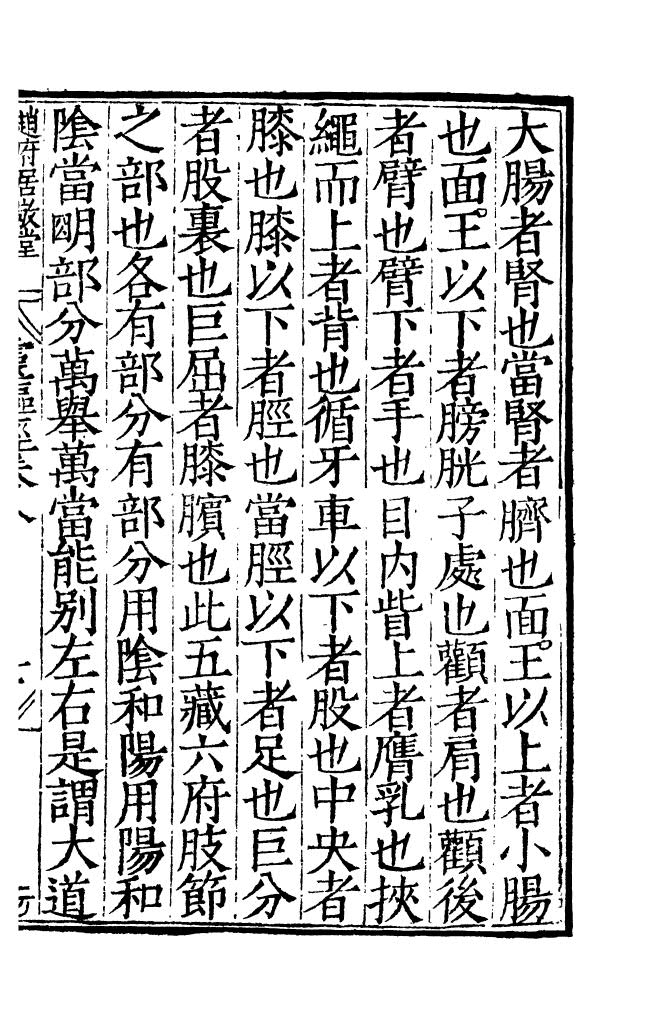 大腸者腎也當腎者臍也面王以上者小腸
也面王以下者膀胱子處也顴者肩也顴後
者臂也臂下者手也目內眥上者膺乳也挾
繩而上者背也循牙車以下者股也中央者
膝也膝以下者脛也當脛以下者足也巨分
者股裏也巨屈者膝臏也此五藏六府肢節
之部也各有部分有部分用陰和陽用陽和
陰當明部分萬舉萬當能別左右是謂大道
趙府居敬堂